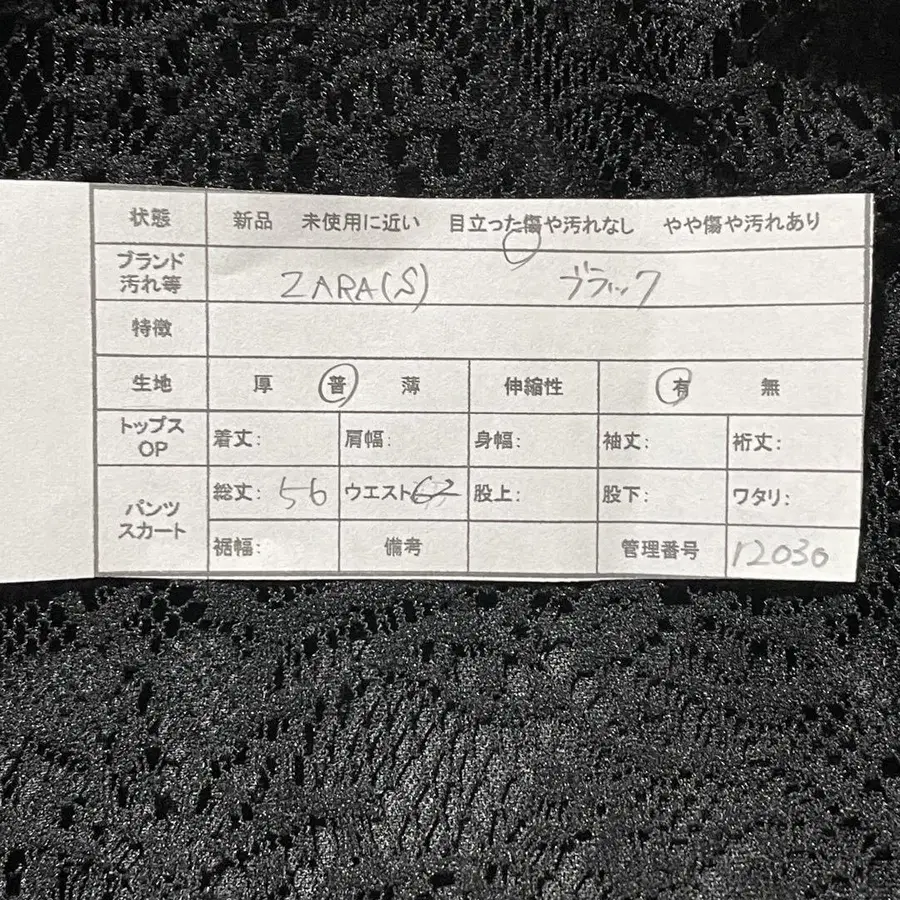 状態 新品 未使用に近い 目立った傷や汚れなし やや傷や汚れあり
ブランド
汚れ等 ZARA(S) ブラック
特徴
生地 厚 普 薄 伸縮性 有 無
トップス
OP 着丈: 肩幅: 身幅: 袖丈: 裄丈:
パンツ
スカート 総丈: 56 ウエスト62 股上: 股下: ワタリ:
裾幅: 備考 管理番号 12030